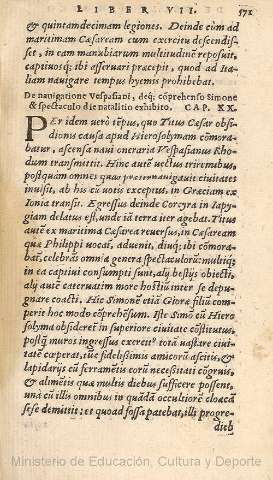 LIBER VII. 571
& quintamdecimam legiones. Deinde cùm ad
maritimam Cæsaream cum exercitu descendis-
set, in eam manubiarum multitudinē reposuit,
captiuosq; ibi asseruari præcepit, quod ad Ita-
liam nauigare tempus hyemis prohibebat.
De nauigatione Vespasiani, deq; cōprehenso Simone
& spectaculo die natalitio exhibito. CAP. XX.
PEr idem verò tēpus, quo Titus Cæsar obsi-
dionis causa apud Hierosolymam cōmora-
batur, ascensa naui oneraria Vespasianus Rho-
dum transmittit. Hinc autē vectus triremibus,
postquam omnes quas præternauigauit ciuitates
inuisit, ab his cū votis exceptus, in Græciam ex
Ionia transit. Egressus deinde Corcyra in Iapy-
giam delatus est, unde iā terra iter agebat. Titus
autē ex maritima Cæsarea reuersus, in Cæsaream
quæ Philippi vocat, aduenit, diuq; ibi cōmora-
bat, celebrās omnia genera spectaculorū: multiq;
in ea captiui consumpti sunt, alij bestijs obiecti,
alij autē cateruatim more hostiū inter se depu-
gnare coacti. Hic Simonē etiā Gioræ filiū com-
perit hoc modo cōprehēsum. Iste Simō cū Hiero
solyma obsideret in superiore ciuitate cōstitutus,
postq̄ muros ingressus exercit' totā vastare ciui-
tatē cœperat, tūc fidelissimis amicorū ascitis, &
lapidarijs cū ferramētis eorū necessitati cōgruis,
& alimētis quæ multis diebus sufficere possent,
unà cū illis omnibus in quādā occultiorē cloacā
sese demittit: et quoad fossa patebat, illi progre-
dieb
Ministerio de Educación, Cultura y Deporte